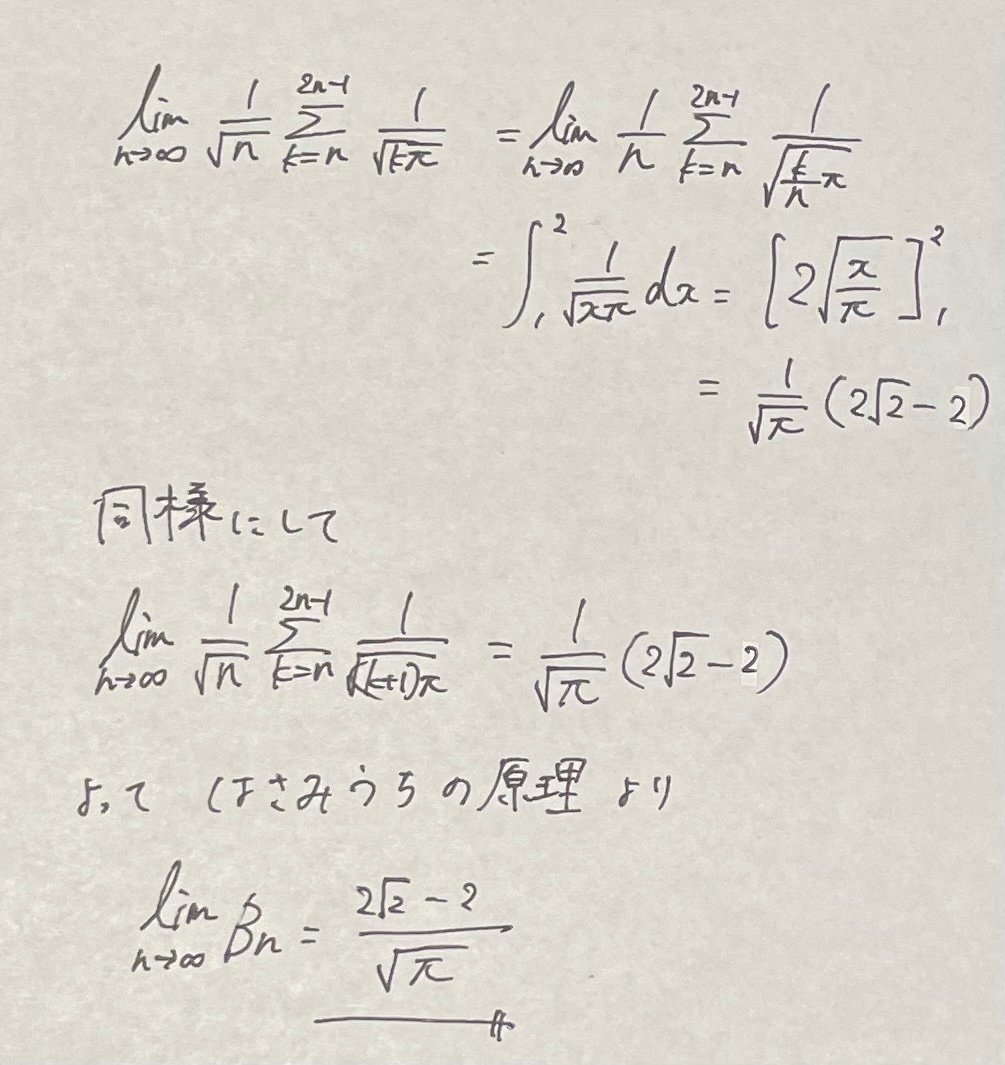 lim n→∞ 1/√n Σ k=n 2n-1 1/√(kπ) = lim n→∞ 1/n Σ k=n 2n-1 1/√((k/n)π)
= ∫₁² 1/√(xπ) dx = [2√(x/π)]₁²
= 1/√π (2√2 - 2)
同様にして
lim n→∞ 1/√n Σ k=n 2n-1 1/√((k+1)π) = 1/√π (2√2 - 2)
よって はさみうちの原理 より
lim n→∞ Bn = (2√2 - 2)/√π